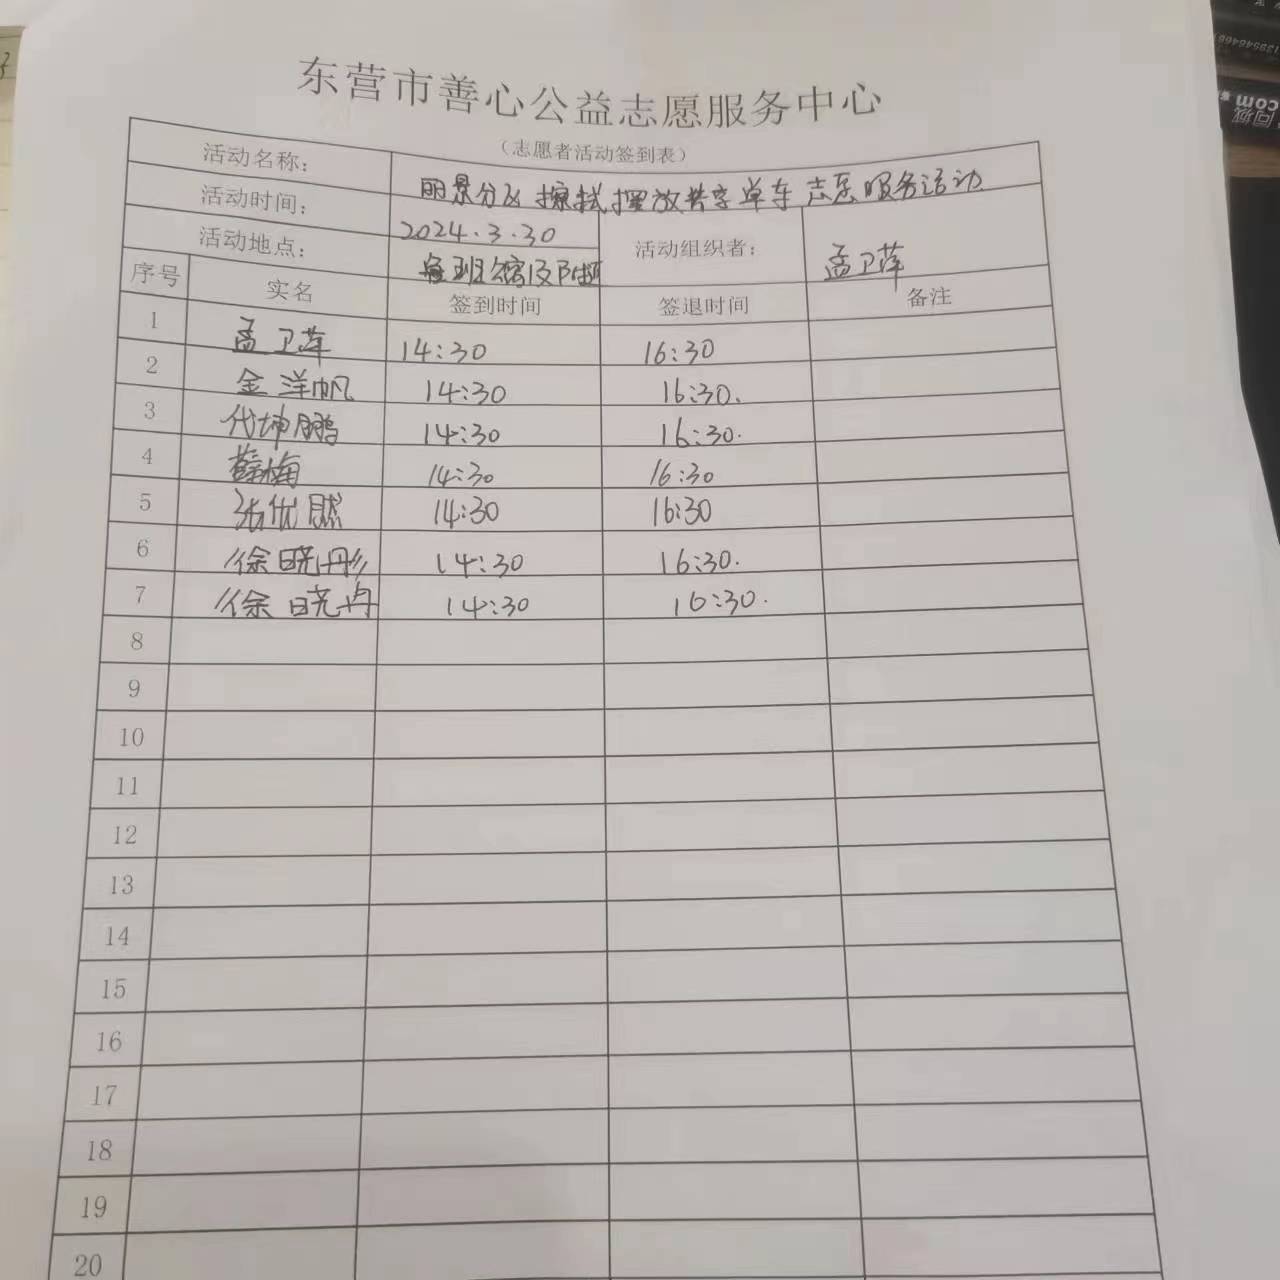 东营市善心公益志愿服务中心
（志愿者活动签到表）
活动名称： 丽景分队擦拭摆放共享单车志愿服务活动
活动时间： 2024.3.30 活动组织者： 孟卫萍
活动地点：
序号 实名 签到时间 签退时间 备注
1 孟卫萍 14:30 16:30
2 金洋帆 14:30 16:30.
3 代坤鹏 14:30 16:30.
4 薛梅 14:30 16:30
5 张优然 14:30 16:30
6 徐晓彤 14:30 16:30.
7 徐晓丹 14:30 16:30.
8
9
10
11
12
13
14
15
16
17
18
19
20